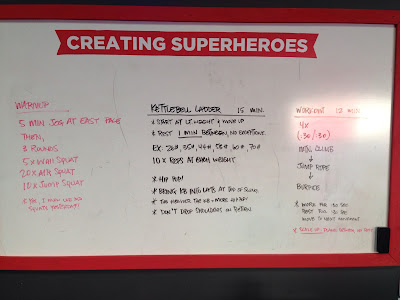 CREATING SUPERHEROES
WARMUP
5 MIN JOG AT EASY PACE
THEN,
3 ROUNDS
5x WALL SQUAT
20x AIR SQUAT
10x JUMP SQUAT
KETTLEBELL LADDER 15 MIN.
* START AT LT. WEIGHT & MOVE UP
* REST 1 MIN BETWEEN, NO EXCEPTIONS
EX: 26#, 35#, 44#, 53#, 60#, 70#
10x REPS AT EACH WEIGHT
* HIP POP!
* BRING KB INTO LATS AT END OF SWING
* THE HEAVIER THE KB = MORE HINGE!
* DON'T DROP SHOULDERS ON RETURN
WORKOUT 12 MIN
4x
(:30/:30)
MTN. CLIMB
↓
JUMP ROPE
↓
BURPEE
* WORK FOR 30 SEC
REST FOR 30 SEC
MOVE TO NEXT MOVEMENT
* SCALE UP: